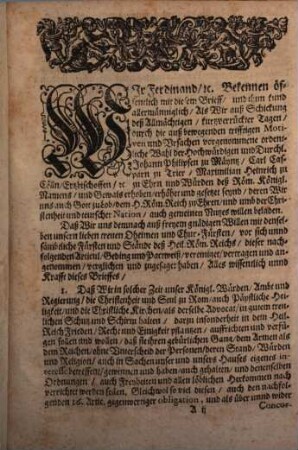 WIr Ferdinand / ꝛc. Bekennen öf-
fentlich mit diesem Brieff / und thun kund
allermänniglich / Als Wir auß Schickung
deß Allmächtigen / kurtzverrückter Tagen /
durch die auß bewegenden trifftigen Moti-
ven und Ursachen vorgenommene ordent-
liche Wahl der Hochwürdigen und Durchl.
Johann Philipsen zu Mäyntz / Carl Cas-
parn zu Trier / Maximilian Heinrich zu
Cölln / Ertzbischoffen / ꝛc. in Ehrn und Würden deß Röm. Königl.
Namens / und Gewals erhaben / erhöhet und gesetzt seynd / deren Wir
uns auch Gott zu Lob / dem H. Röm. Reich zu Ehren / und umb der Chri-
stenheit und teutscher Nation / auch gemeinen Nutzes willen beladen.
Daß Wir uns demnach auß freyem gnädigen Willen mit denensel-
ben unsern lieben neuen Oheimen und Chur-Fürsten / vor sich unnd
sämbtliche Fürsten und Stände deß Heil. Röm. Reichs / dieser nach-
folgenden Articul. Geding und Pactweiß / vereiniget / vertragen und an-
genommen / verglichen und zugesaget haben / Alles wissentlich unnd
Krafft dieses Brieffes /
1. Daß Wir in solcher Zeit unser Königl. Würden / Ambt und
Regierung / die Christenheit und Stul zu Rom / auch Päpstliche Hei-
ligkeit / und die Christliche Kirchen / als derselbe Advocat / in guten treu-
lichen Schutz und Schirm halten / darzu insonderheit in dem Heil.
Reich Frieden / Recht und Einigkeit pflantzen / auffrichten und verfü-
gen sollen und wollen / daß sie ihren gebürlichen Gang / dem Armen als
dem Reichen / ohne Unterscheid der Personen / deren Stand / Würden
und Religion / auch in Sachen unser und unsers Hauses eigenes in-
betreffen / gewinnen und haben / auch gehalten / und denenselben
Ordnungen / auch Freyheiten und alten löblichen Herkommen nach
verrichtet werden sollen. Gleichwol so viel diesen / auch den nachfol-
genden 16. Artic. gegenwertiger obligation, und als über unnd wider
A ij Concor-